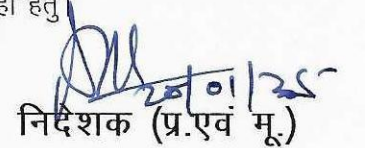 हेतु
20/01/25
निदेशक (प्र.एवं मू.)